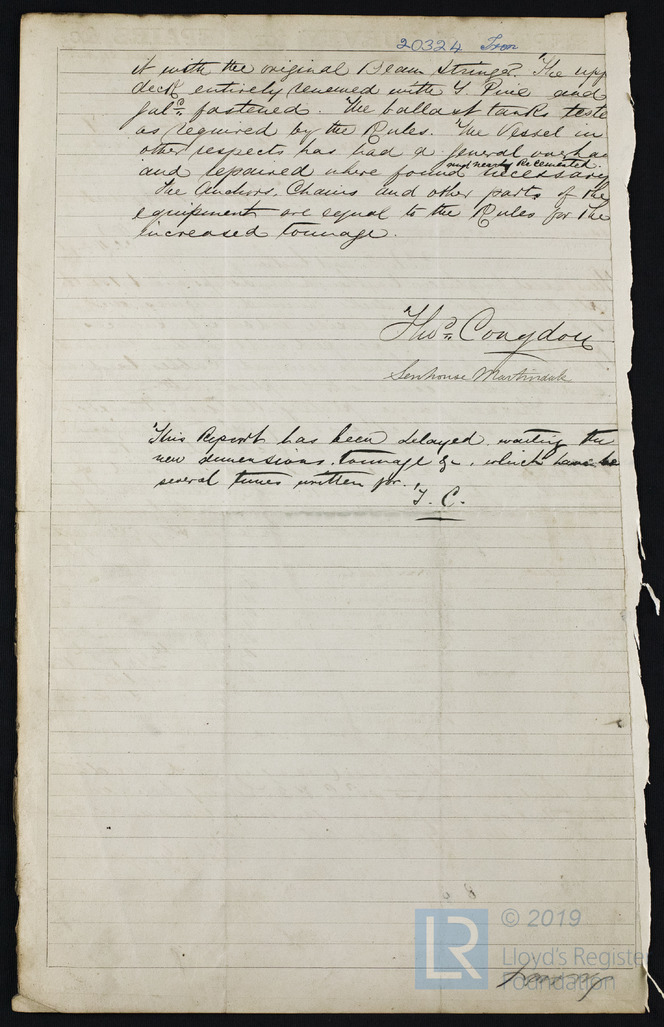 20324 Iron
it with the original Beam Stringrs. The upp
deck entirely renewed with Y. Pine and
galᵈ fastened. The ballast tanks teste
as required by the Rules. The Vessel in
other respects has had a general overha
and nearly Recemented
and repaired where found necessary
The Anchors, Chains and other parts of the
equipment are equal to the Rules for the
increased tonnage.
Thoˢ Congdon
Senhouse Martindale
This Report has been delayed, waiting the
new dimensions, tonnage &c, which have be
several times written for.
T. C.
© 2019
LR
Lloyd's Register
Foundation